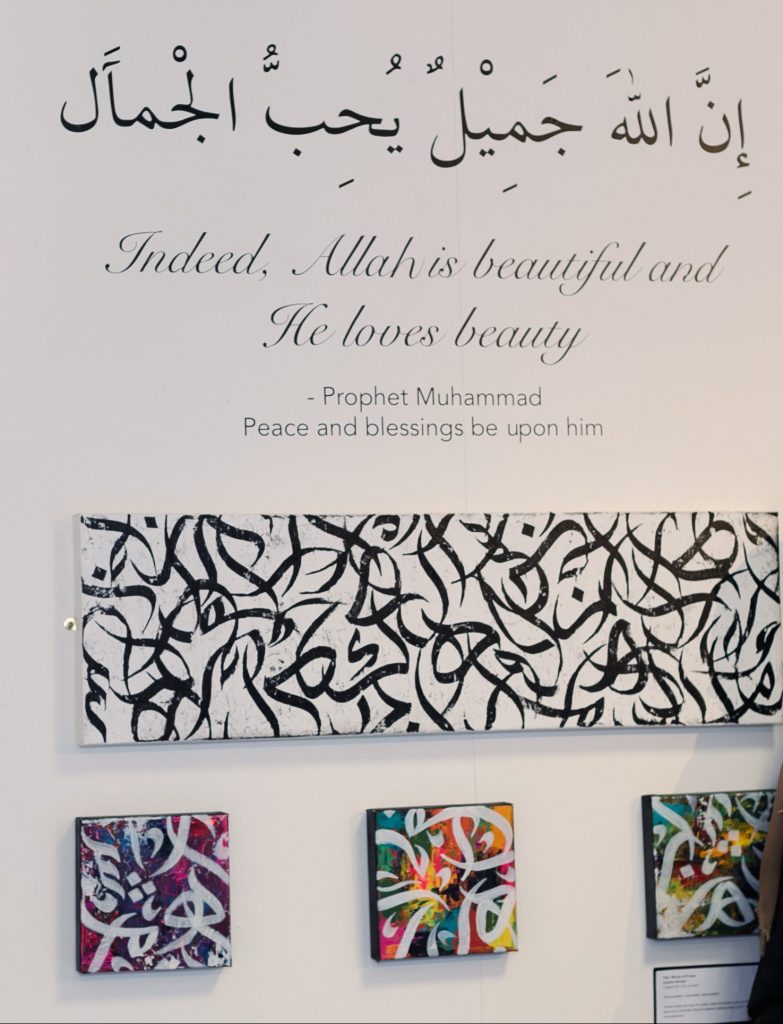 إِنَّ اللّٰهَ جَمِيْلٌ يُحِبُّ الْجَمَاَل
Indeed, Allah is beautiful and
He loves beauty
- Prophet Muhammad
Peace and blessings be upon him